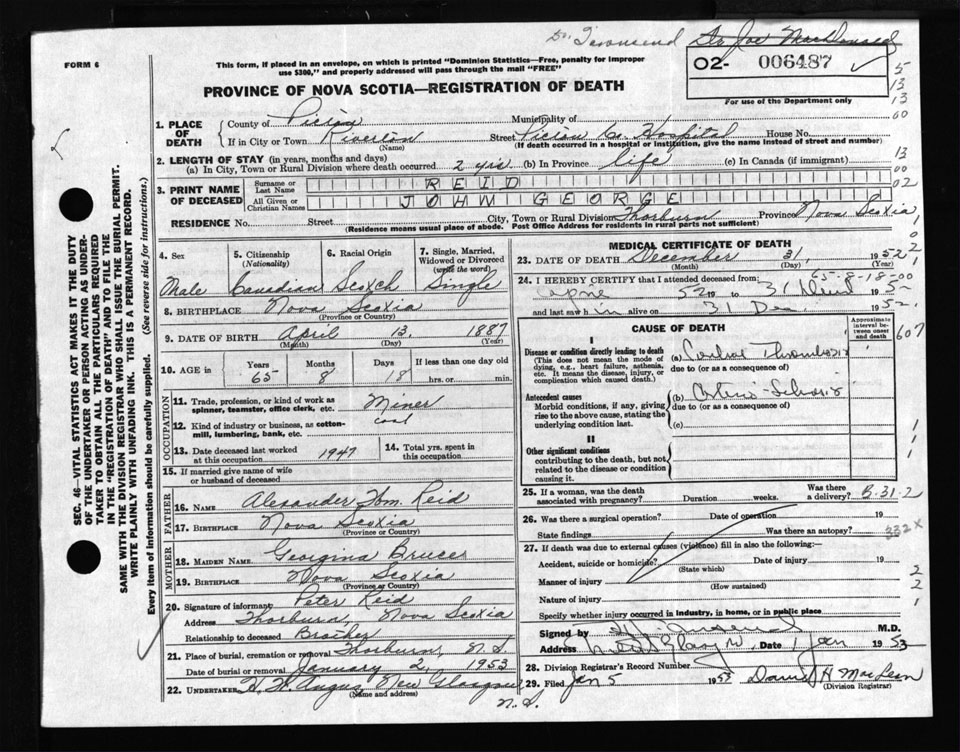 Dr. Townsend Dr Joe MacDonald
FORM 6
This form, if placed in an envelope, on which is printed "Dominion Statistics—Free, penalty for improper
use $300," and properly addressed will pass through the mail "FREE"
02- 006487
For use of the Department only
PROVINCE OF NOVA SCOTIA—REGISTRATION OF DEATH
5
13
13
60
13
00
02
SEC. 46—VITAL STATISTICS ACT MAKES IT THE DUTY
OF THE UNDERTAKER OR PERSON ACTING AS UNDER-
TAKER TO OBTAIN ALL THE PARTICULARS REQUIRED
IN THE "REGISTRATION OF DEATH" AND TO FILE THE
SAME WITH THE DIVISION REGISTRAR WHO SHALL ISSUE THE BURIAL PERMIT.
WRITE PLAINLY WITH UNFADING INK. THIS IS A PERMANENT RECORD.
Every item of information should be carefully supplied. (See reverse side for instructions.)
1. PLACE OF DEATH
County of Pictou Municipality of
If in City or Town Riverton Street Pictou Co. Hospital House No.
(Name) (If death occurred in a hospital or institution, give the name instead of street and number)
2. LENGTH OF STAY (in years, months and days)
(a) In City, Town or Rural Division where death occurred 2 yrs (b) In Province life (c) In Canada (if immigrant)
3. PRINT NAME OF DECEASED
Surname or Last Name REID
All Given or Christian Names JOHN GEORGE
RESIDENCE No. Street City, Town or Rural Division Thorburn Province Nova Scotia
(Residence means usual place of abode. Post Office Address for residents in rural parts not sufficient)
4. Sex
Male
5. Citizenship (Nationality)
Canadian
6. Racial Origin
Scotch
7. Single, Married, Widowed or Divorced (write the word)
Single
8. BIRTHPLACE Nova Scotia
(Province or Country)
9. DATE OF BIRTH April 13, 1887
(Month) (Day) (Year)
10. AGE in Years Months Days If less than one day old
65 8 18 hrs. or min.
OCCUPATION
11. Trade, profession, or kind of work as spinner, teamster, office clerk, etc. Miner
12. Kind of industry or business, as cotton-mill, lumbering, bank, etc. coal
13. Date deceased last worked at this occupation 1947
14. Total yrs. spent in this occupation
15. If married give name of wife or husband of deceased
FATHER
16. NAME Alexander Wm. Reid
17. BIRTHPLACE Nova Scotia
(Province or Country)
MOTHER
18. MAIDEN NAME Georgina Bruce
19. BIRTHPLACE Nova Scotia
(Province or Country)
20. Signature of informant Peter Reid
Address Thorburn, Nova Scotia
Relationship to deceased Brother
21. Place of burial, cremation or removal Thorburn, N.S.
Date of burial or removal January 2, 1953
22. UNDERTAKER H. H. Angus, New Glasgow
(Name and address)
N.S.
MEDICAL CERTIFICATE OF DEATH
23. DATE OF DEATH December 31 1952
(Month) (Day) (Year)
65-8-18-00
24. I HEREBY CERTIFY that I attended deceased from:
52 19 to 31 19 52
and last saw him alive on 31 Dec. 1952
CAUSE OF DEATH
Approximate interval between onset and death
607
I
Disease or condition directly leading to death
(This does not mean the mode of dying, e.g., heart failure, asthenia, etc. It means the disease, injury, or complication which caused death.)
(a) Cerebral Thrombosis
due to (or as a consequence of)
Antecedent causes
Morbid conditions, if any, giving rise to the above cause, stating the underlying condition last.
(b) Arterio-Sclerosis
due to (or as a consequence of)
(c)
II
Other significant conditions
contributing to the death, but not related to the disease or condition causing it.
25. If a woman, was the death associated with pregnancy? Duration weeks. Was there a delivery?
B-31-2
26. Was there a surgical operation? Date of operation 19
State findings Was there an autopsy?
332X
27. If death was due to external causes (violence) fill in also the following:—
Accident, suicide or homicide? Date of injury 19
(State which)
Manner of injury
(How sustained)
Nature of injury
Specify whether injury occurred in industry, in home, or in public place
Signed by M.D.
Address New Glasgow, Date 1 Jan 1953
28. Division Registrar's Record Number
29. Filed Jan 5 1953 David H MacLean
(Division Registrar)